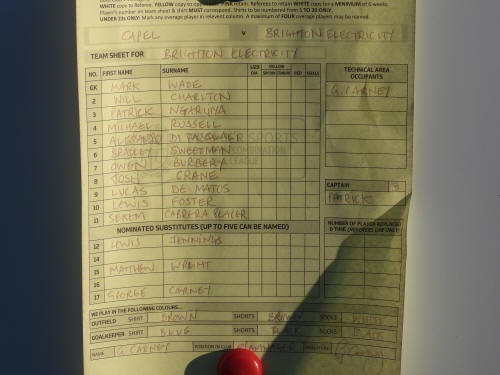 WHITE copy to Referee. YELLOW copy to opposition. PINK retain. Referees to retain WHITE copy for a MINIMUM of 6 weeks.
Player's number on team sheet & shirt MUST correspond. Shirts to be numbered from 1 TO 20 ONLY.
UNDER 23s ONLY: Mark any average player in relevant column. A maximum of FOUR average players may be named.
CAPEL v BRIGHTON ELECTRICITY
TEAM SHEET FOR BRIGHTON ELECTRICITY
NO. FIRST NAME SURNAME U23 YELLOW RED GOALS TECHNICAL AREA OCCUPANTS
GK MARK WADE G. CARNEY
2 WILL CHARLTON
3 PATRICK
4 MICHAEL RUSSELL
5
6 BRADLEY SWEETMAN
7 OWEN BURBERY
8 JOSH CRANE
9 LUCAS DE MATOS CAPTAIN 3
10 LEWIS FOSTER PATRICK
11 CABRERA
NOMINATED SUBSTITUTES (UP TO FIVE CAN BE NAMED) NUMBER OF PLAYER REPLACED & TIME (REFEREES USE ONLY)
12 LEWIS JENNINGS
14
15 MATTHEW WRIGHT
16
17 GEORGE CARNEY
WE PLAY IN THE FOLLOWING COLOURS...
OUTFIELD SHIRT BROWN SHORTS BROWN SOCKS WHITE
GOALKEEPER SHIRT BLUE SHORTS BLACK SOCKS BLACK
NAME G. CARNEY POSITION IN CLUB MANAGER